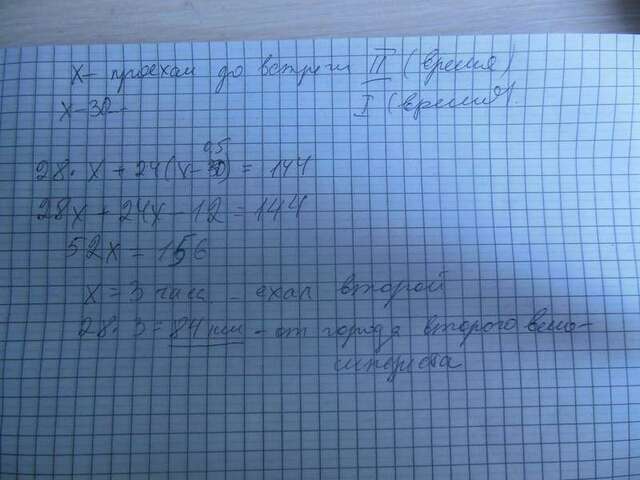 х – проехал до встречи II (время)
х – 30 – I (время).
28 · х + 24(х – 0,5) = 144
28х + 24х – 12 = 144
52х = 156
х = 3 часа – ехал второй
28 · 3 = 84 км – от города второго вело-
сипедиста